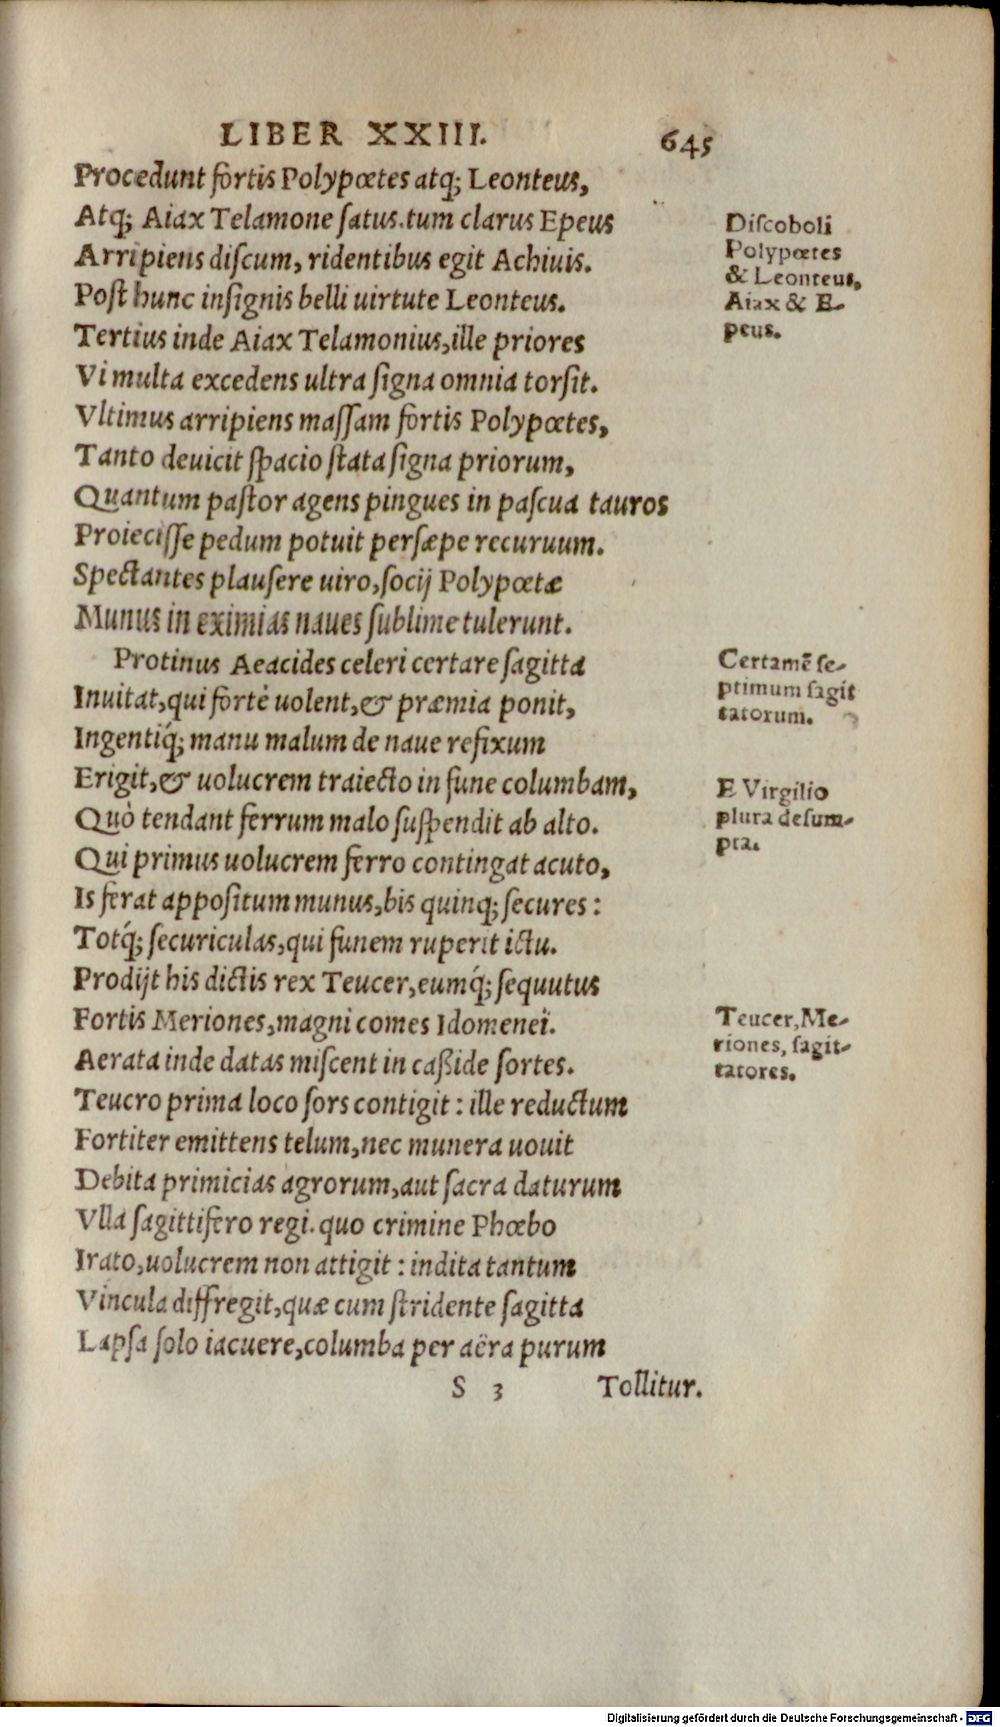 LIBER XXIII. 645
Procedunt fortis Polypœtes atq; Leonteus,
Atq; Aiax Telamone ſatus.tum clarus Epeus
Arripiens diſcum, ridentibus egit Achiuis.
Poſt hunc inſignis belli uirtute Leonteus.
Tertius inde Aiax Telamonius,ille priores
Vi multa excedens ultra ſigna omnia torſit.
Vltimus arripiens maſſam fortis Polypœtes,
Tanto deuicit ſpacio ſtata ſigna priorum,
Quantum paſtor agens pingues in paſcua tauros
Proieciſſe pedum potuit perſæpe recuruum.
Spectantes plauſere uiro,ſocij Polypœtæ
Munus in eximias naues ſublime tulerunt.
Protinus Aeacides celeri certare ſagitta
Inuitat,qui fortè uolent,& præmia ponit,
Ingentiq́; manu malum de naue refixum
Erigit,& uolucrem traiecto in fune columbam,
Quò tendant ferrum malo ſuſpendit ab alto.
Qui primus uolucrem ferro contingat acuto,
Is ferat appoſitum munus,bis quinq; ſecures :
Totq́; ſecuriculas,qui funem ruperit ictu.
Prodijt his dictis rex Teucer,eumq́; ſequutus
Fortis Meriones,magni comes Idomeneï.
Aerata inde datas miſcent in caßide ſortes.
Teucro prima loco ſors contigit : ille reductum
Fortiter emittens telum,nec munera uouit
Debita primicias agrorum,aut ſacra daturum
Vlla ſagittifero regi. quo crimine Phœbo
Irato,uolucrem non attigit : indita tantum
Vincula diffregit,quæ cum ſtridente ſagitta
Lapſa ſolo iacuere,columba per aëra purum
S 3 Tollitur.
Diſcoboli
Polypœtes
& Leonteus,
Aiax & E-
peus.
Certamē ſe-
ptimum ſagit
tatorum.
E Virgilio
plura deſum-
pta.
Teucer,Me-
riones, ſagit-
tatores.
Digitalisierung gefördert durch die Deutsche Forschungsgemeinschaft - DFG